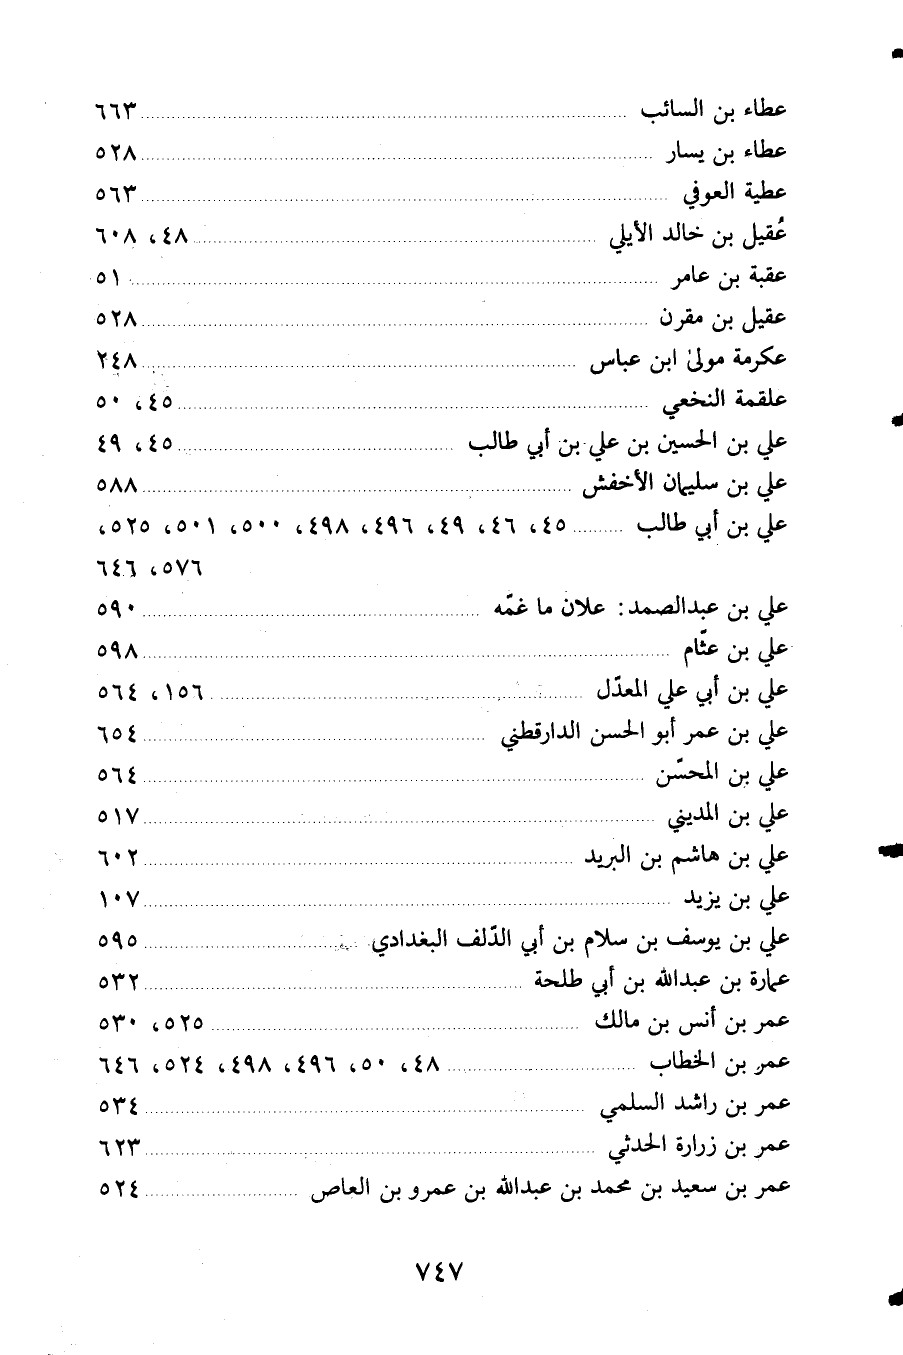 عطاء بن السائب ........ ٦٦٣
عطاء بن يسار ........ ٥٢٨
عطية العوفي ........ ٥٦٣
عُقيل بن خالد الأيلي ........ ٤٨، ٦٠٨
عقبة بن عامر ........ ٥١
عقيل بن مقرن ........ ٥٢٨
عكرمة مولىٰ ابن عباس ........ ٢٤٨
علقمة النخعي ........ ٤٥، ٥٠
علي بن الحسين بن علي بن أبي طالب ........ ٤٥، ٤٩
علي بن سليمان الأخفش ........ ٥٨٨
علي بن أبي طالب ........ ٤٥، ٤٦، ٤٩، ٤٩٦، ٤٩٨، ٥٠٠، ٥٠١، ٥٢٥،
٥٧٦، ٦٤٦
علي بن عبدالصمد: علان ما غمّه ........ ٥٩٠
علي بن عثّام ........ ٥٩٨
علي بن أبي علي المعدّل ........ ١٥٦، ٥٦٤
علي بن عمر أبو الحسن الدارقطني ........ ٦٥٤
علي بن المحسّن ........ ٥٦٤
علي بن المديني ........ ٥١٧
علي بن هاشم بن البريد ........ ٦٠٢
علي بن يزيد ........ ١٠٧
علي بن يوسف بن سلام بن أبي الدّلف البغدادي ........ ٥٩٥
عمارة بن عبدالله بن أبي طلحة ........ ٥٣٢
عمر بن أنس بن مالك ........ ٥٢٥، ٥٣٠
عمر بن الخطاب ........ ٤٨، ٥٠، ٤٩٦، ٤٩٨، ٥٢٤، ٦٤٦
عمر بن راشد السلمي ........ ٥٣٤
عمر بن زرارة الحدثي ........ ٦٢٣
عمر بن سعيد بن محمد بن عبدالله بن عمرو بن العاص ........ ٥٢٤
٧٤٧